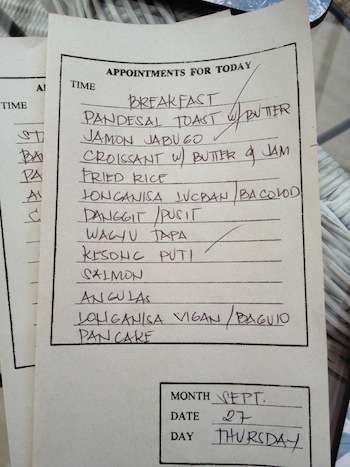 APPOINTMENTS FOR TODAY
TIME
BREAKFAST
PANDESAL TOAST w/ BUTTER
JAMON JABUGO
CROISSANT w/ BUTTER & JAM
FRIED RICE
LONGANISA LUCBAN / BACOLOD
DANGGIT / PUSIT
WAGYU TAPA
KESONG PUTI
SALMON
ANGULAS
LONGANISA VIGAN / BAGUIO
PANCAKE
MONTH SEPT.
DATE 27
DAY THURSDAY
TIME